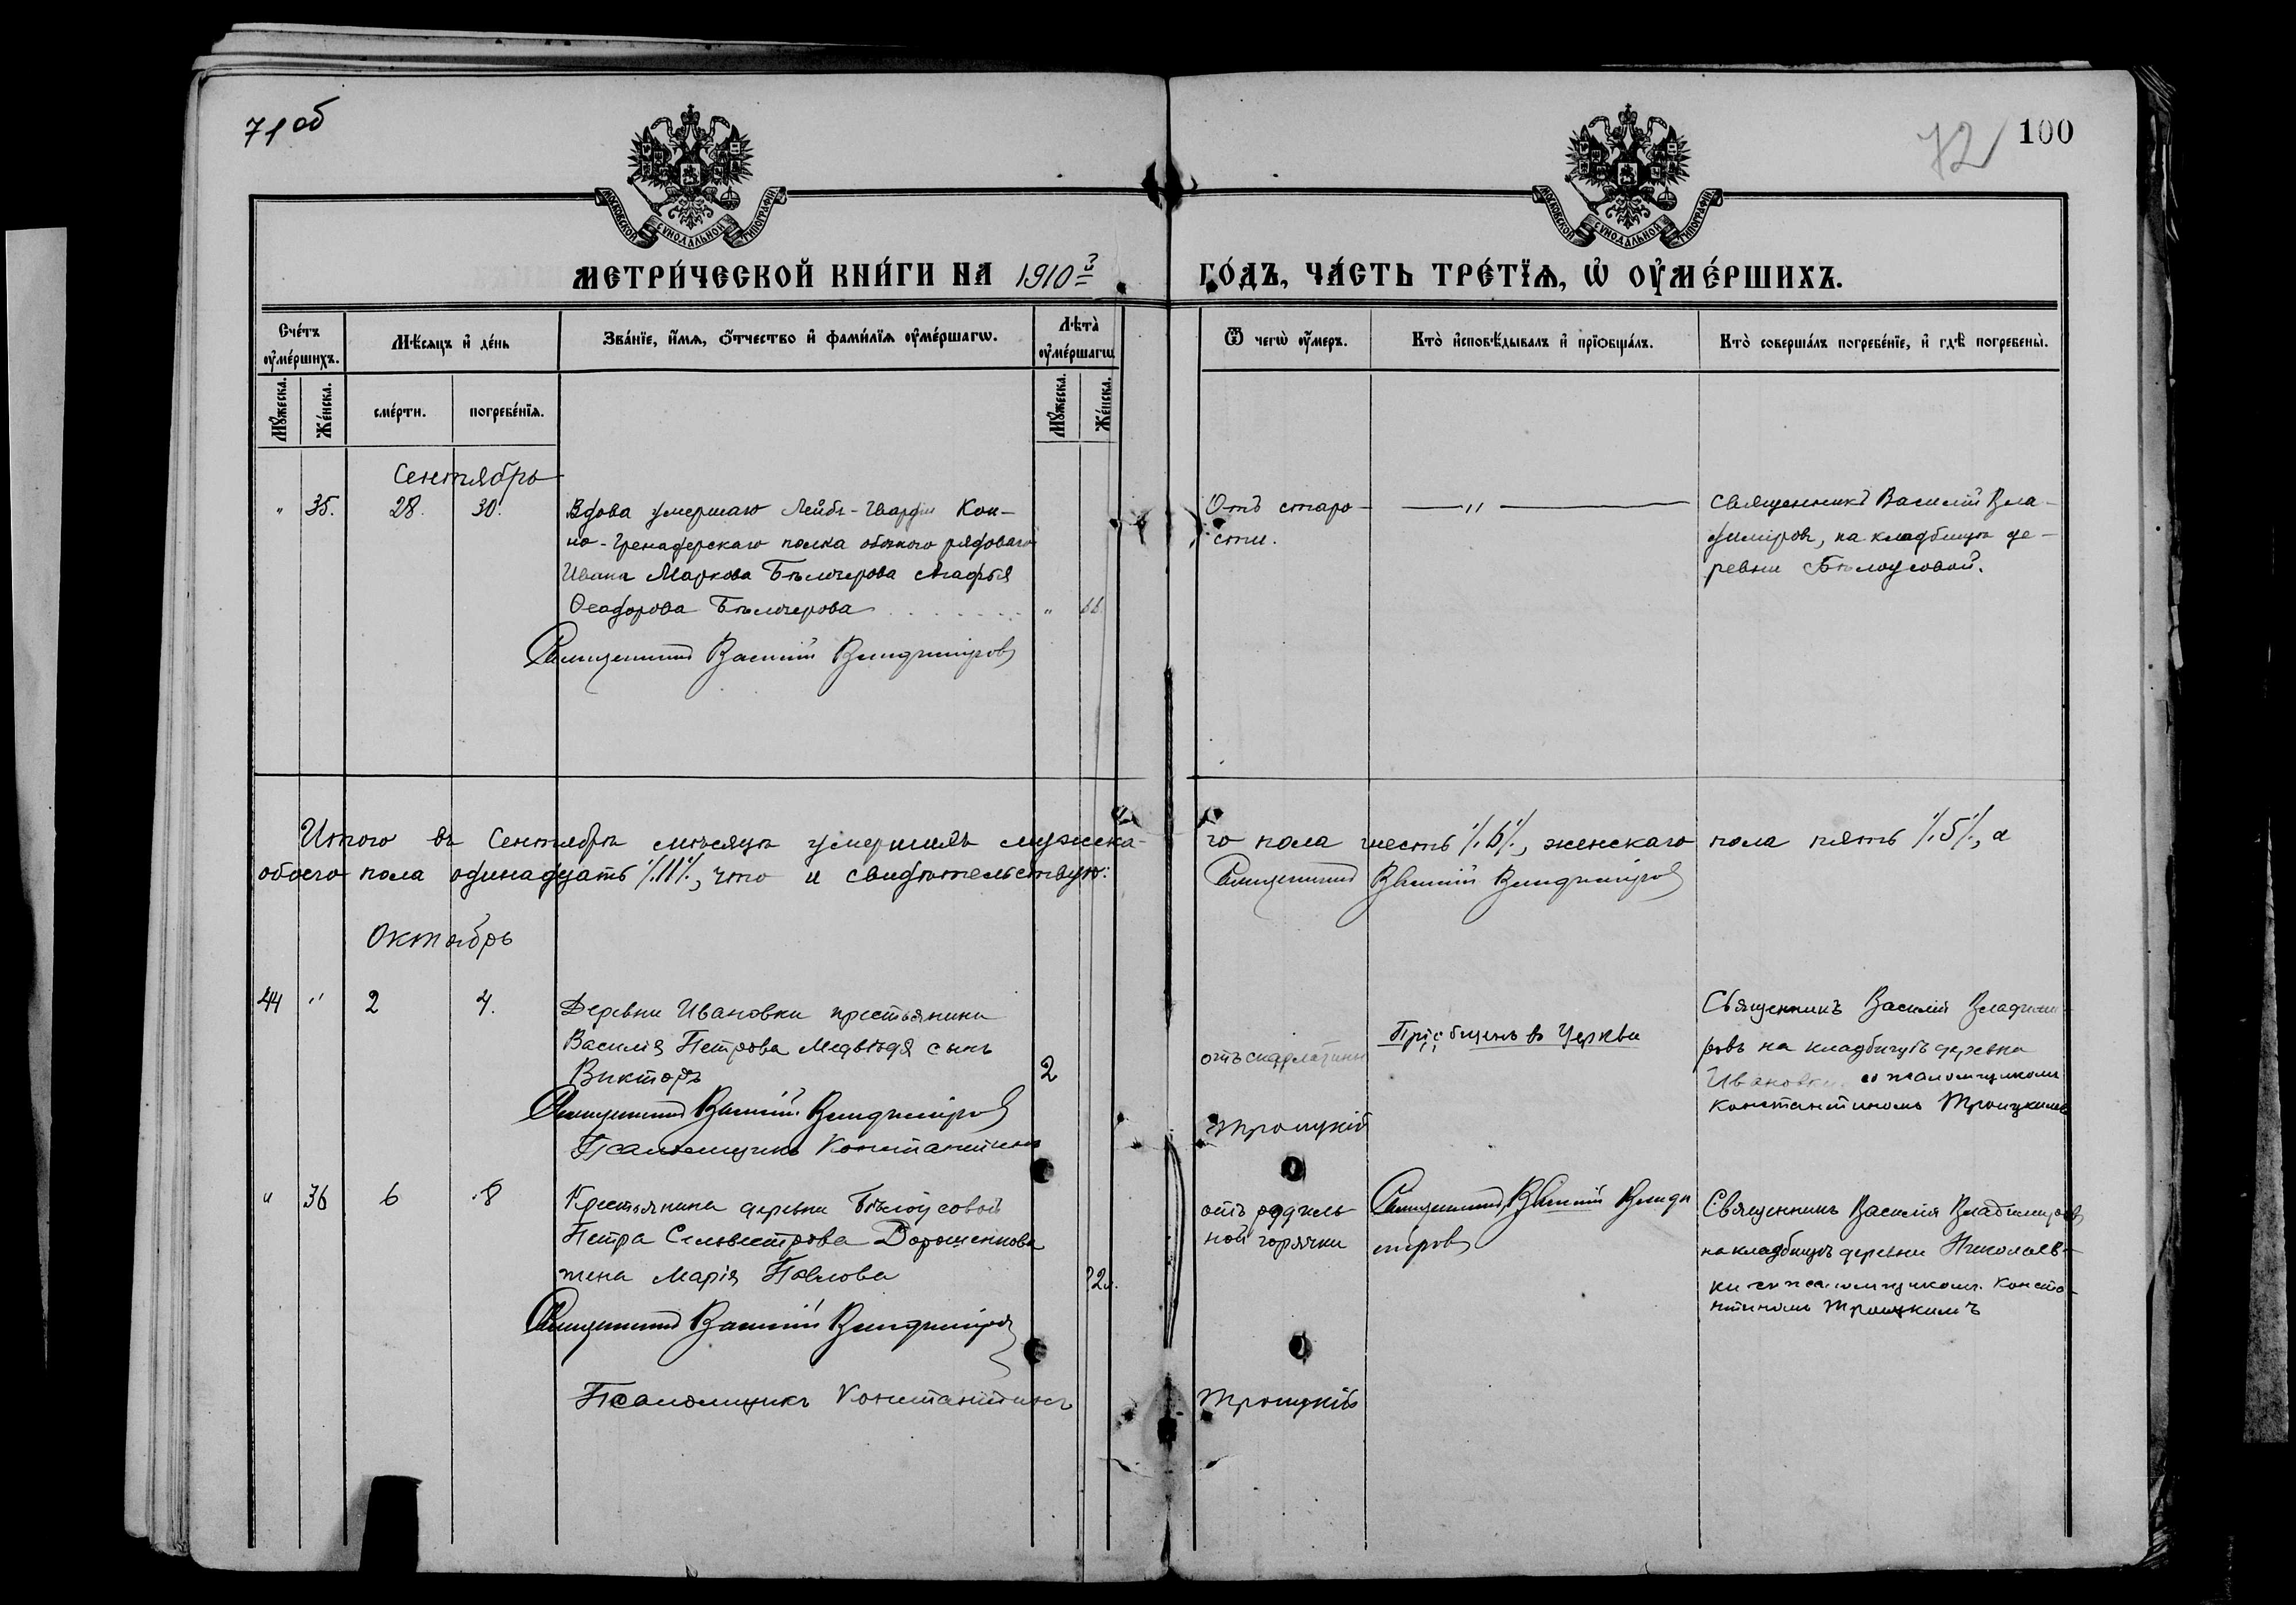 71 об
72
100
МОСКОВСКОЙ СѴНОДАЛЬНОЙ ТИПОГРАФІИ
МОСКОВСКОЙ СѴНОДАЛЬНОЙ ТИПОГРАФІИ
МЕТРИ́ЧЕСКОЙ КНИ́ГИ НА 1910й
ГО́ДЪ, ЧА́СТЬ ТРЕ́ТЇѦ, Ѡ҆ ОУ҆МЕ́РШИХЪ.
Сче́тъ оу҆ме́ршихъ.
Мѣ́сяцъ и҆ де́нь
Зва́нїе, и҆́мѧ, ѻ҆́тчество и҆ фами́лїѧ оу҆ме́ршагѡ.
Лѣта̀ оу҆ме́ршагѡ
Ѿ чегѡ̀ оу҆́меръ.
Кто̀ и҆сповѣ́дывалъ и҆ прїѻбща́лъ.
Кто̀ соверша́лъ погребе́нїе, и҆ гдѣ̀ погребены̀.
Мꙋ́жеска.
Же́нска.
сме́рти.
погребе́нїѧ.
Мꙋ́жеска.
Же́нска.
Сентябрь
" 35. 28. 30. Вдова умершаго Лейбъ-Гвардіи Кон-
но-Гренадерскаго полка рядоваго
Ивана Маркова Бѣлочерова Агафья
Ѳеодорова Бѣлочерова "
Священникъ Василій Владиміровъ
Отъ старо-
сти.
"
Священникъ Василій Вла-
диміровъ, на кладбищѣ де-
ревни Бѣлоусовой.
Итого въ Сентябрѣ мѣсяцѣ умершихъ мужска-
го пола шесть ⁒6⁒, женскаго пола пять ⁒5⁒, а
обоего пола одинадцать ⁒11⁒, что и свидѣтельствую:
Священникъ Василій Владиміровъ
Октябрь
44 " 2 4. Деревни Ивановки крестьянина
Василія Петрова Медвѣдя сынъ
Викторъ 2
Священникъ Василій Владиміровъ
Псаломщикъ Константинъ
Троицкій
отъ скарлатины
Пріобщенъ въ Церкви
Священникъ Василій Владими-
ровъ на кладбищѣ деревни
Ивановки съ псаломщикомъ
Константиномъ Троицкимъ
" 36 6 8 Крестьянина деревни Бѣлоусовой
Петра Сильвестрова Дорошенкова
жена Марія Павлова 22.
Священникъ Василій Владиміровъ
Псаломщикъ Константинъ
Троицкій
отъ родиль-
ной горячки
Священникъ Василій Влади
міровъ
Священникъ Василій Владиміровъ
на кладбищѣ деревни Николаев-
ки съ псаломщикомъ Конста-
нтиномъ Троицкимъ